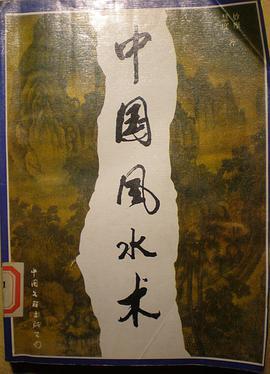 中国风水术
中国文联出版公司